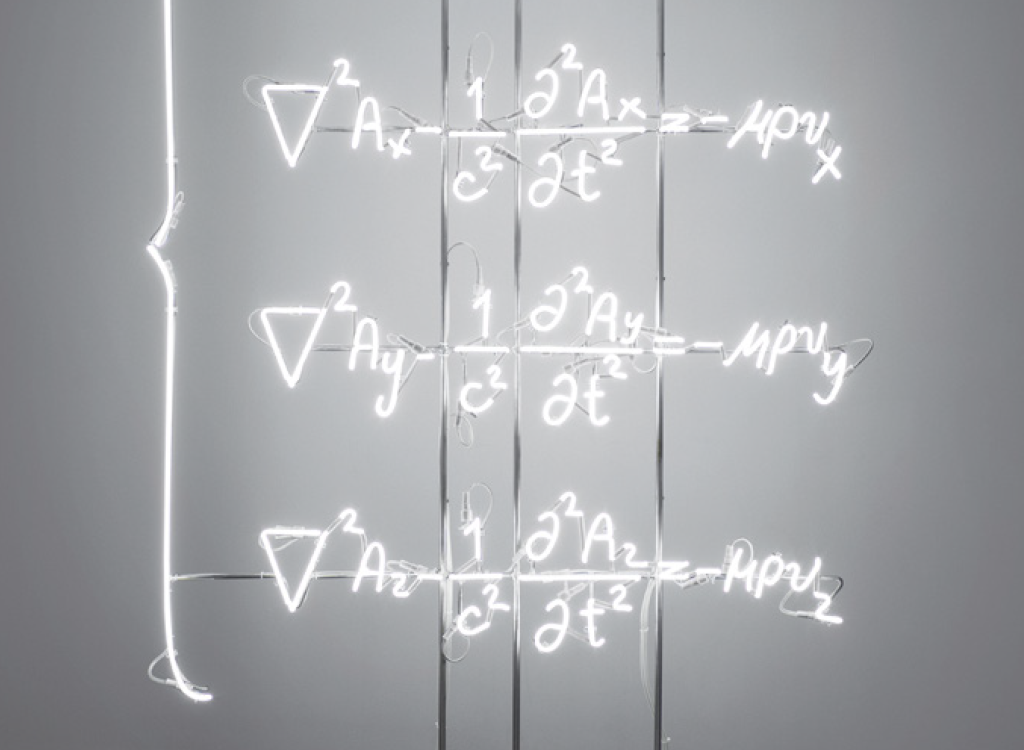 ∇²Aₓ - 1/c² ∂²Aₓ/∂t² = -μρvₓ
∇²A_y - 1/c² ∂²A_y/∂t² = -μρv_y
∇²A_z - 1/c² ∂²A_z/∂t² = -μρv_z